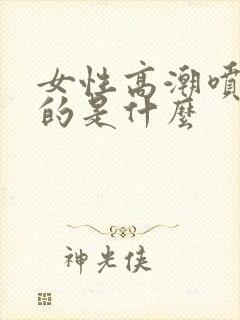 女性高潮噴
的是什麼
神光俠